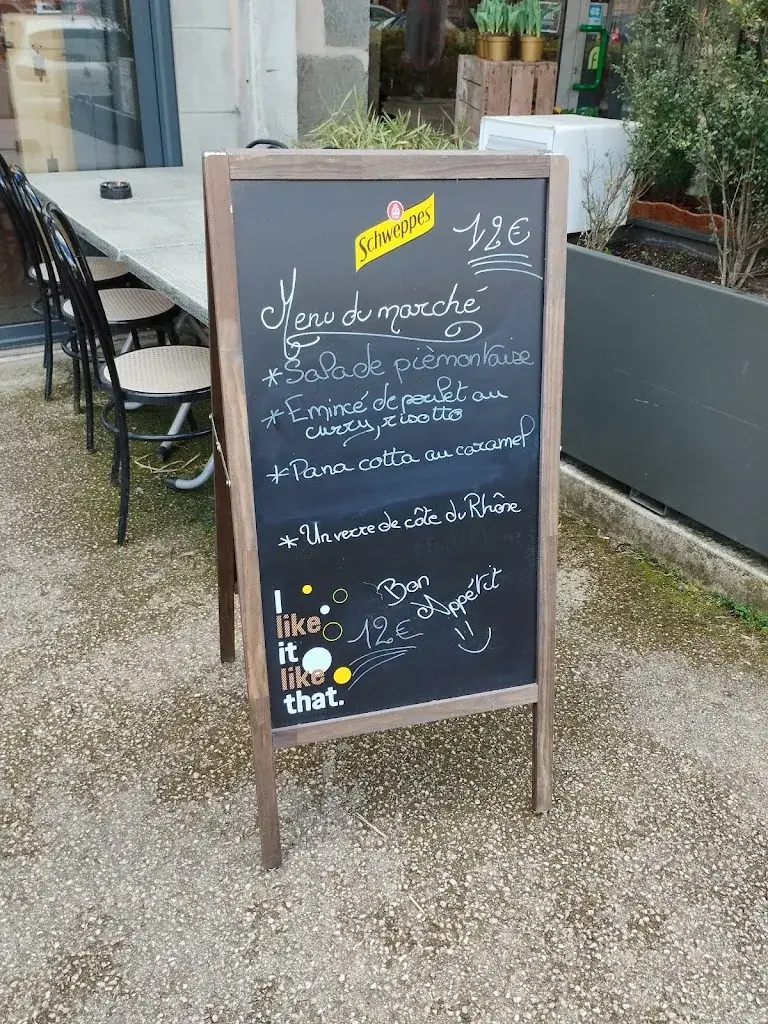 Schweppes
12€
Menu du marché
* Salade pièmontaise
* Emincé de poulet au
curry, risotto
* Pana cotta au caramel
* Un verre de côte du Rhône
Bon
Appétit
12€
I
like
it
like
that.